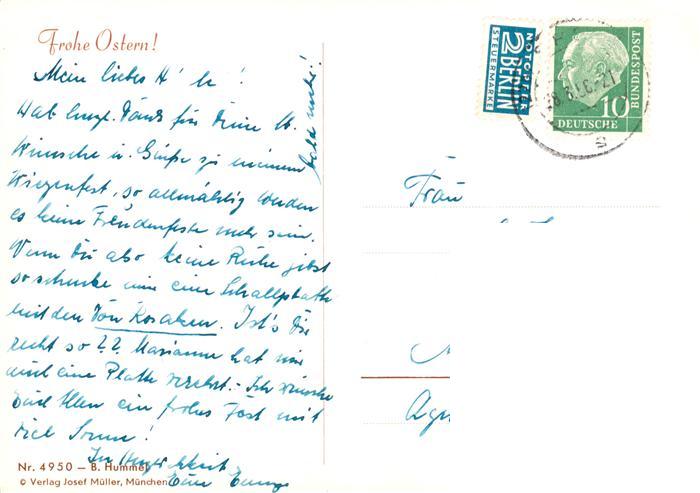 Frohe Ostern!
Mein liebes H
Hab herzl. Dank für Deine lb.
Wünsche u. Grüße zu meinem
Wiegenfest, so allmählig werden
es keine Freudenfeste mehr sein.
Wenn Du also keine Ruhe gibst
so schenke mir eine Schallplatte
mit den Don Kosaken. Ist's Dir
recht so ?? Marianne hat mir
auch eine Platte verehrt. - Ich wünsche
Euch Allen ein frohes Fest mit
viel Sonne!
In
Eure
Nr. 4950 — B. Hummel
© Verlag Josef Müller, München
NOTOPFER
2 BERLIN
STEUERMARKE
10
DEUTSCHE
BUNDESPOST
Frau